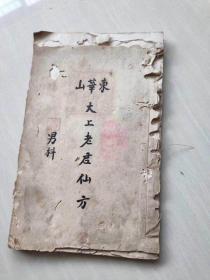 東華山
大上老君仙方
男科